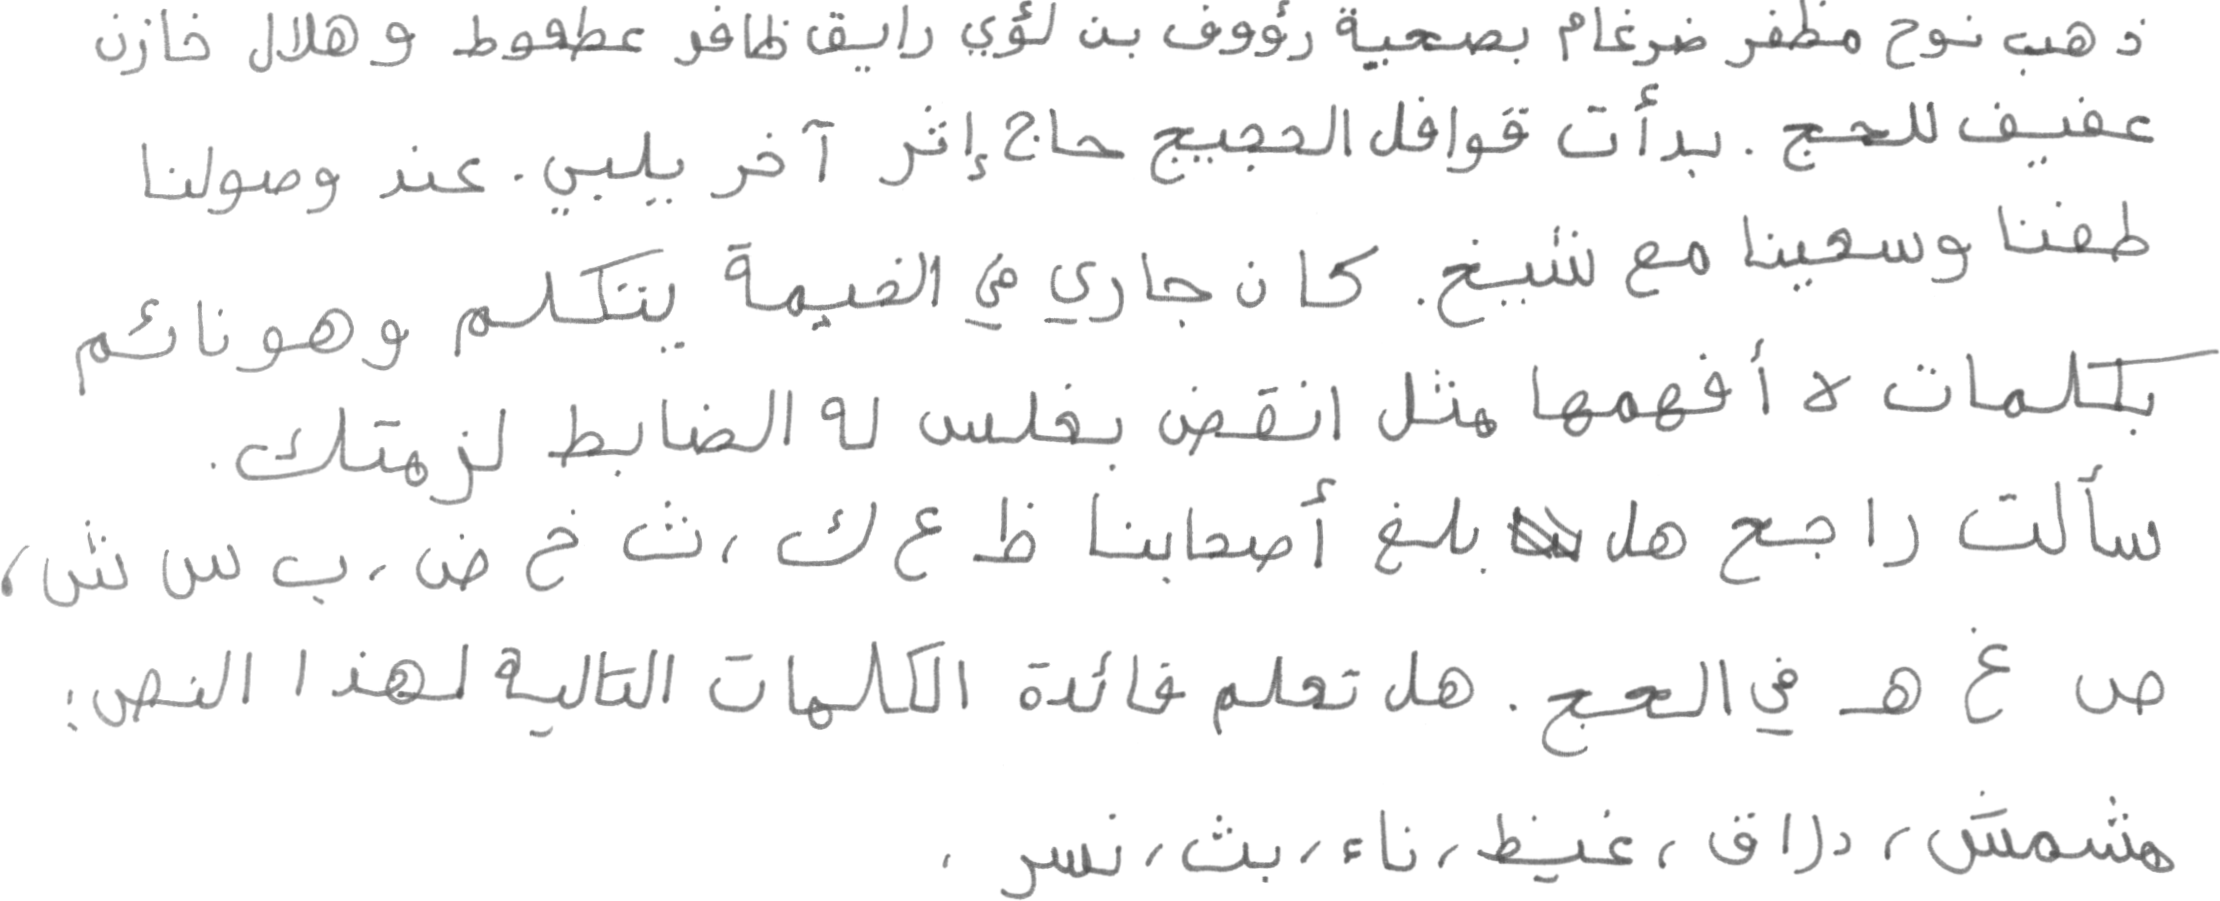 ذهب نوح مظفر ضرغام بصحبة رؤوف بن لؤي رايق ظافر عطعوط و هلال خازن
عفيف للحج . بدأت قوافل الحجيج حاج إثر آخر يلبي . عند وصولنا
طفنا وسعينا مع شيخ . كان جاري في الخيمة يتكلم وهو نائم
بكلمات لا أفهمها مثل انقض بغلس له الضابط لزمتك .
سألت راجح هل بلغ أصحابنا ظ ع ك ، ث خ ض ، ب س ش ،
ص غ هـ في الحج . هل تعلم فائدة الكلمات التالية لهذا النص :
مشمش ، دراق ، غيظ ، ناء ، بث ، نسر ،